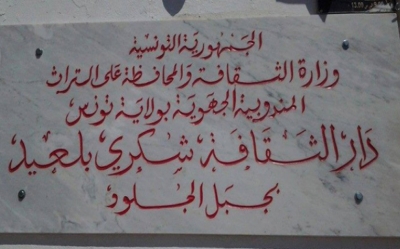 الجمهورية التونسية
وزارة الثقافة والمحافظة على التراث
المندوبية الجهوية بولاية تونس
دار الثقافة شكري بلعيد
بجبل الجلود